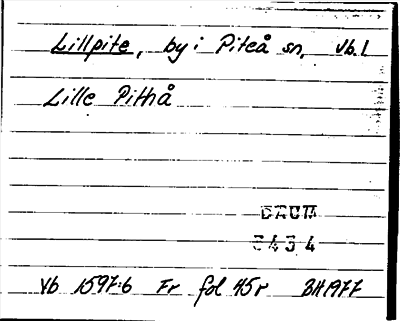 Lillpite, by i Piteå sn, Vb.l
Lille Pithå
DAUM
3434
Vb 1597:6 Fr fol 45r BH1977